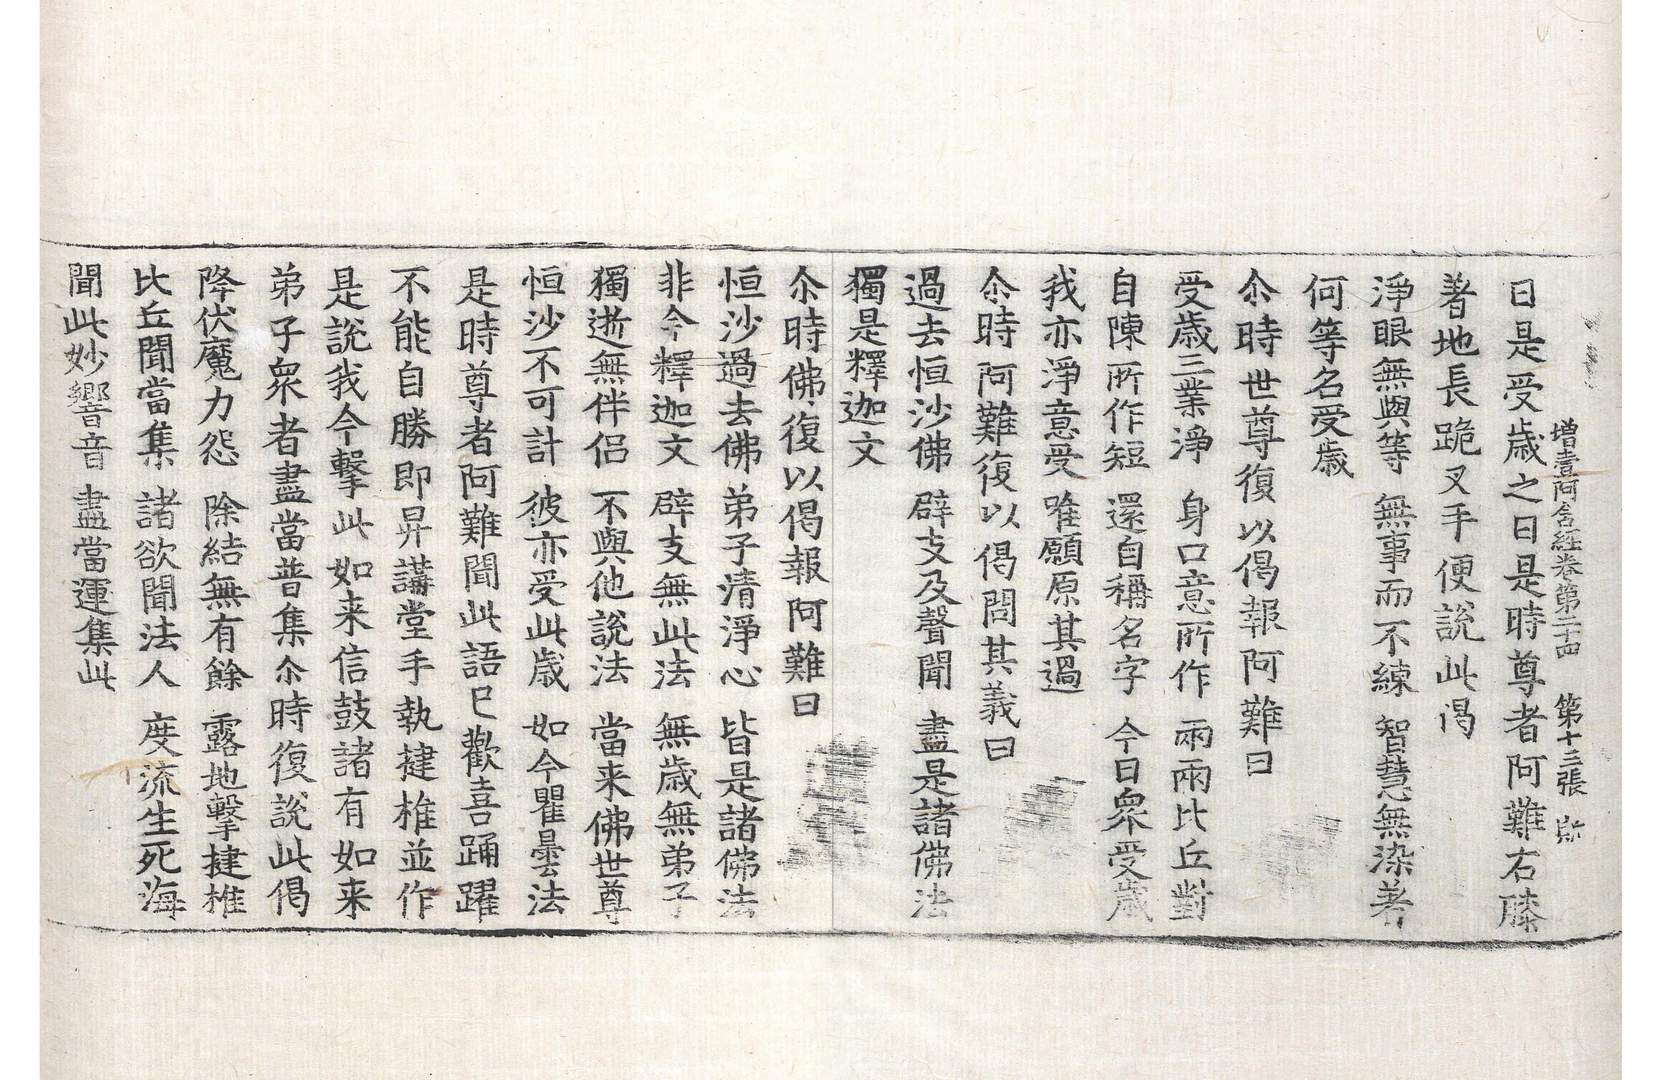 增壹阿含經卷第二十四 第十三張
日是受歲之日是時尊者阿難右膝
著地長跪叉手便說此偈
淨眼無與等 無事而不練 智慧無染著
何等名受歲
尒時世尊復以偈報阿難曰
受歲三業淨 身口意所作 兩兩比丘對
自陳所作短 還自稱名字 今日衆受歲
我亦淨意受 唯願原其過
尒時阿難復以偈問其義曰
過去恒沙佛 辟支及聲聞 盡是諸佛法
獨是釋迦文
尒時佛復以偈報阿難曰
恒沙過去佛 弟子清淨心 皆是諸佛法
非今釋迦文 辟支無此法 無歲無弟子
獨逝無伴侶 不與他說法 當来佛世尊
恒沙不可計 彼亦受此歲 如今瞿曇法
是時尊者阿難聞此語已歡喜踊躍
不能自勝即昇講堂手執揵椎並作
是說我今擊此如来信鼓諸有如来
弟子衆者盡當普集尒時復說此偈
降伏魔力怨 除結無有餘 露地擊揵椎
比丘聞當集 諸欲聞法人 度流生死海
聞此妙響音 盡當運集此